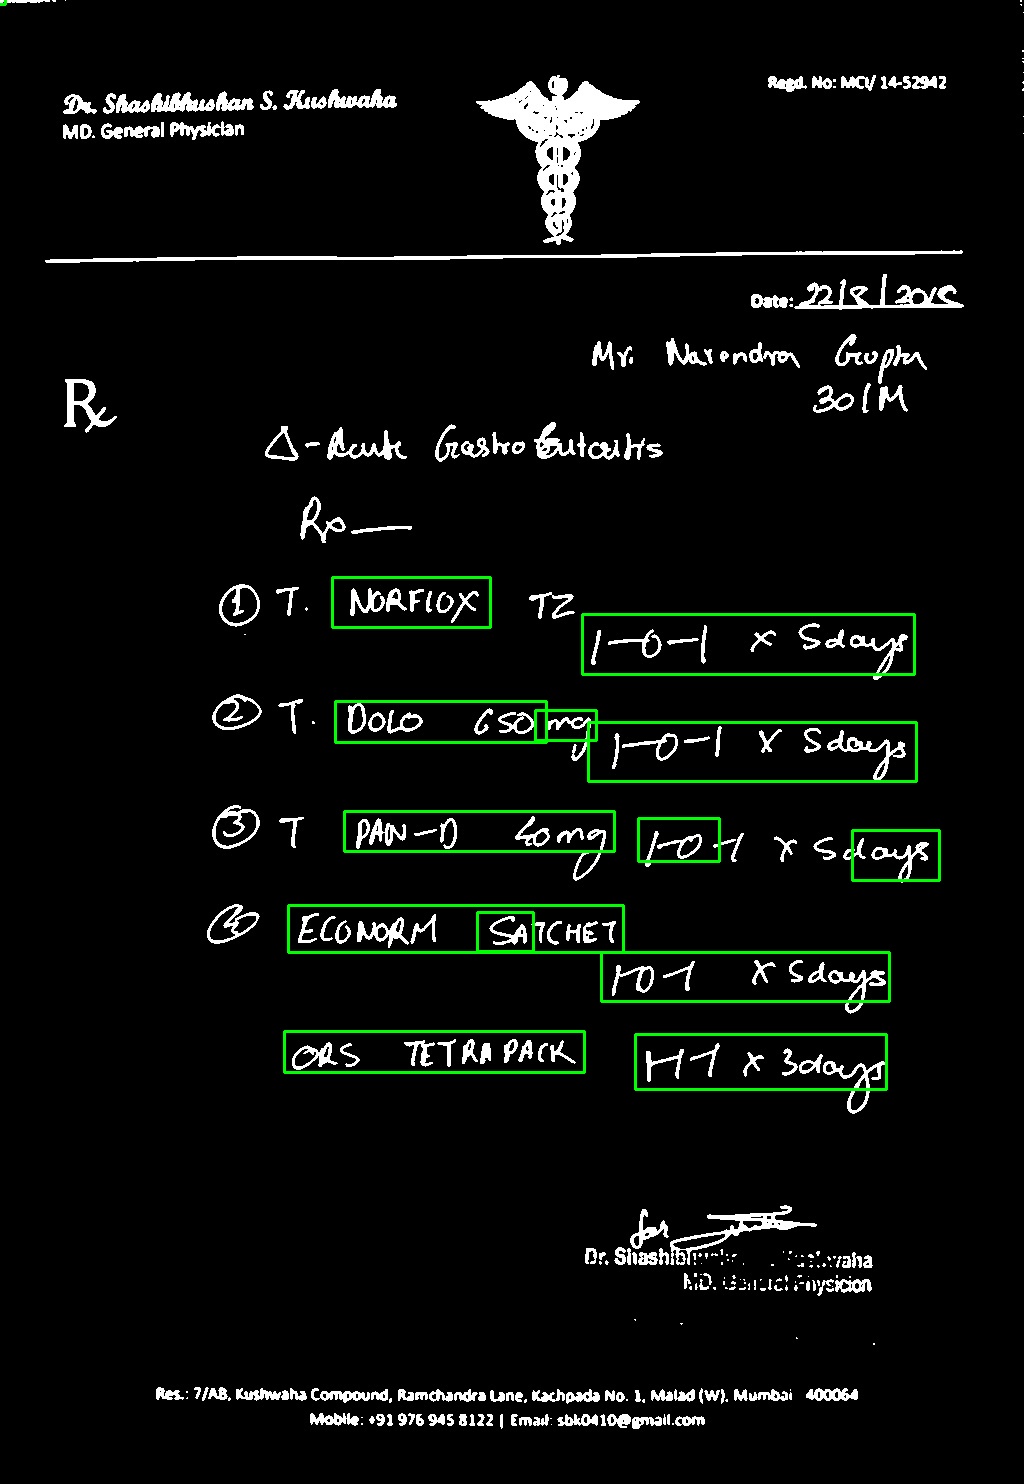 Dr. Shashibhushan S. Kushwaha
MD. General Physician
Regd. No: MCI/ 14-52942
Date: 22/8/2018
Mr. Narendra Gupta
30/M
Rx
Δ - Acute Gastro
Rx —
① T. NORFLOX TZ
1-0-1 x 5days
② T. DOLO 650mg
1-0-1 x 5days
③ T PAN-D 40mg 1-0-1 x 5days
④ ECONORM SATCHET
1-0-1 x 5days
ORS TETRA PACK 1-1-1 x 3days
for
Dr. Kushwaha
MD. General Physicion
Res.: 7/AB, Kushwaha Compound, Ramchandra Lane, Kachpada No. 1, Malad (W), Mumbai 400064
Mobile: +91 976 945 8122 | Email: sbk0410@gmail.com